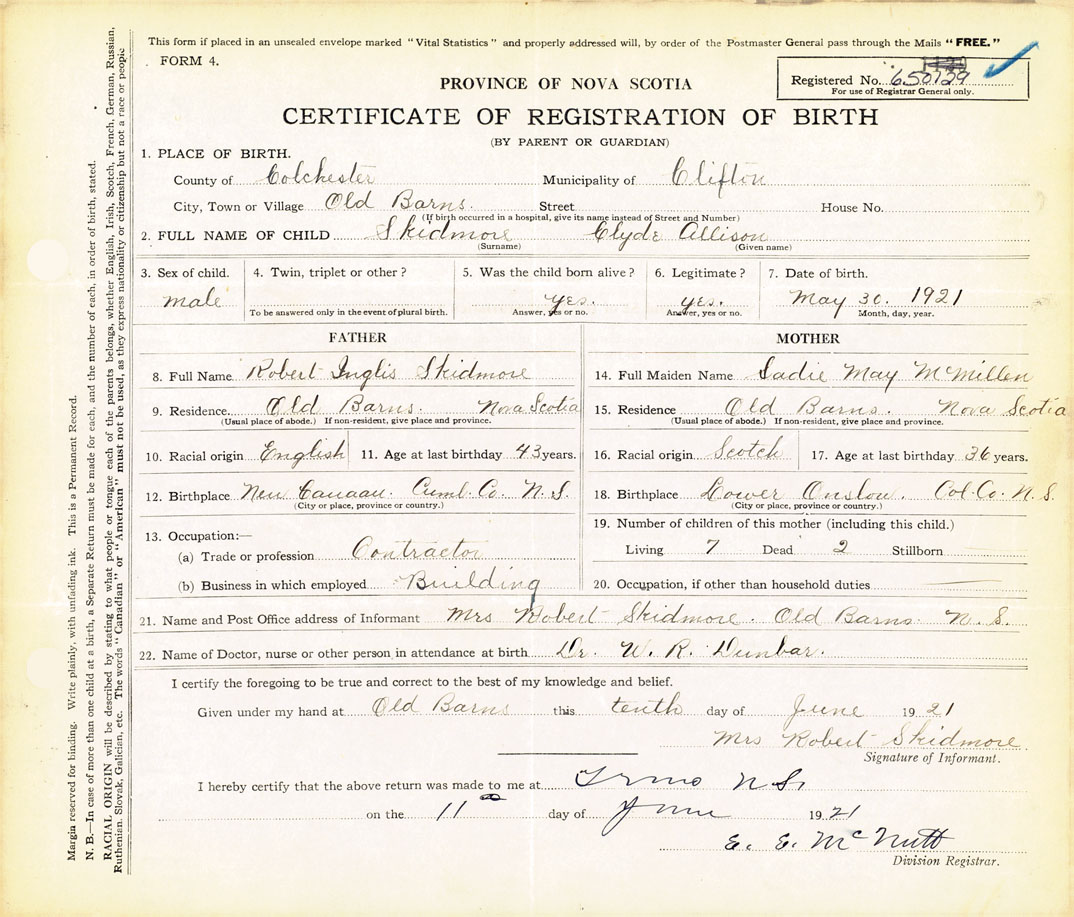 This form if placed in an unsealed envelope marked "Vital Statistics" and properly addressed will, by order of the Postmaster General pass through the Mails "FREE."
FORM 4.
Registered No. 650129
For use of Registrar General only.
PROVINCE OF NOVA SCOTIA
CERTIFICATE OF REGISTRATION OF BIRTH
(BY PARENT OR GUARDIAN)
1. PLACE OF BIRTH.
County of Colchester Municipality of Clifton
City, Town or Village Old Barns. Street House No.
(If birth occurred in a hospital, give its name instead of Street and Number)
2. FULL NAME OF CHILD Skidmore Clyde Allison
(Surname) (Given name)
3. Sex of child. 4. Twin, triplet or other? 5. Was the child born alive? 6. Legitimate? 7. Date of birth.
male yes. yes. May 30. 1921
To be answered only in the event of plural birth. Answer, yes or no. Answer, yes or no. Month, day, year.
FATHER
8. Full Name Robert Inglis Skidmore
9. Residence. Old Barns. Nova Scotia
(Usual place of abode.) If non-resident, give place and province.
10. Racial origin English 11. Age at last birthday 43 years.
12. Birthplace New Canaan. Cumb. Co. N. S.
(City or place, province or country.)
13. Occupation:—
(a) Trade or profession Contractor
(b) Business in which employed Building
MOTHER
14. Full Maiden Name Sadie May McMillen
15. Residence Old Barns. Nova Scotia
(Usual place of abode.) If non-resident, give place and province.
16. Racial origin Scotch 17. Age at last birthday 36 years.
18. Birthplace Lower Onslow. Col. Co. N. S.
(City or place, province or country.)
19. Number of children of this mother (including this child.)
Living 7 Dead 2 Stillborn
20. Occupation, if other than household duties
21. Name and Post Office address of Informant Mrs Robert Skidmore. Old Barns. N. S.
22. Name of Doctor, nurse or other person in attendance at birth Dr. W. R. Dunbar.
I certify the foregoing to be true and correct to the best of my knowledge and belief.
Given under my hand at Old Barns this tenth day of June 1921
Mrs Robert Skidmore.
Signature of Informant.
I hereby certify that the above return was made to me at Truro N.S.
on the 11 day of June 1921
E. E. McNutt
Division Registrar.
Margin reserved for binding. Write plainly, with unfading ink. This is a Permanent Record.
N. B.—In case of more than one child at a birth, a Separate Return must be made for each, and the number of each, in order of birth, stated.
RACIAL ORIGIN will be described by stating to what people or tongue each of the parents belongs, whether English, Irish, Scotch, French, German, Russian,
Ruthenian, Slovak, Galician, etc. The words "Canadian" or "American" must not be used, as they express nationality or citizenship but not a race or people